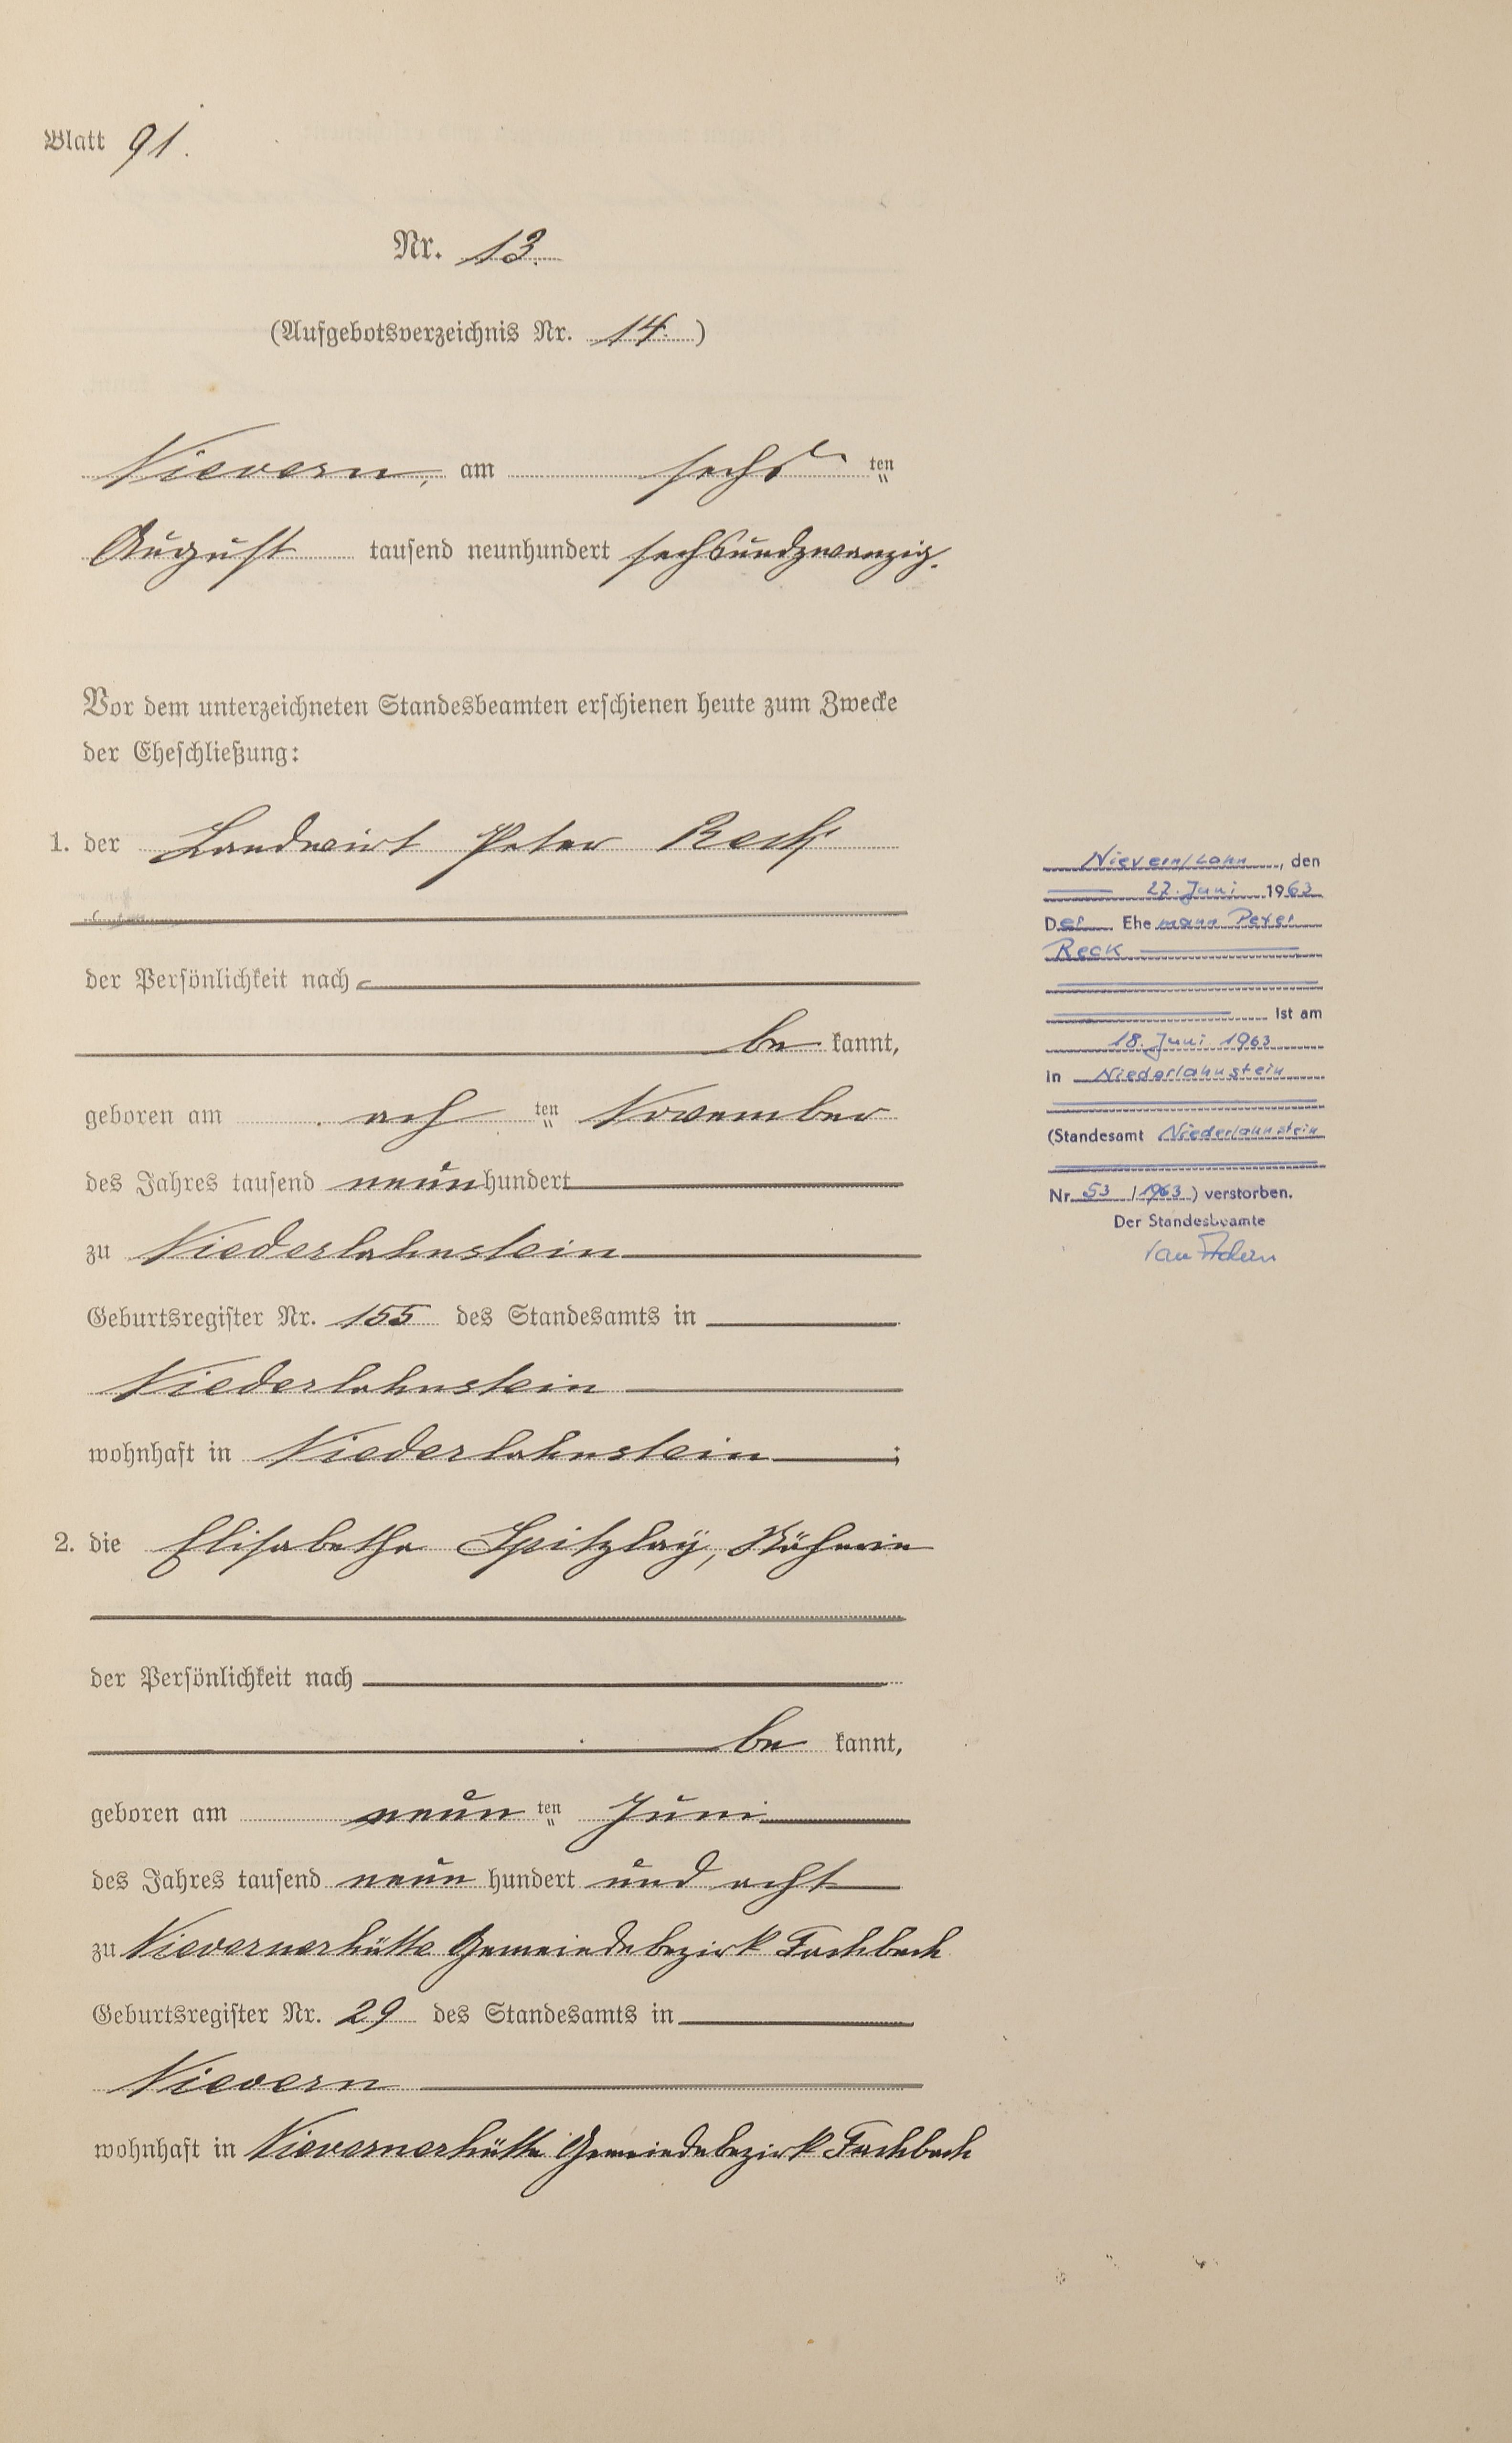 Blatt 91.
Nr. 13.
(Aufgebotsverzeichnis Nr. 14.)
Nievern, am sechs ten
August tausend neunhundert sechsundzwanzig.
Vor dem unterzeichneten Standesbeamten erschienen heute zum Zwecke
der Eheschließung:
1. der Landwirt Peter Reck
der Persönlichkeit nach
be kannt,
geboren am ach ten November
des Jahres tausend neunhundert
zu Niederlahnstein
Geburtsregister Nr. 155 des Standesamts in
Niederlahnstein
wohnhaft in Niederlahnstein;
2. die Elisabetha Spitzlaÿ, Näherin
der Persönlichkeit nach
be kannt,
geboren am neun ten Juni
des Jahres tausend neun hundert und acht
zu Nievernerhütte Gemeindebezirk Fachbach
Geburtsregister Nr. 29 des Standesamts in
Nievern
wohnhaft in Nievernerhütte Gemeindebezirk Fachbach
Nievern/Lahn, den
27. Juni 1963
Der Ehemann Peter
Reck
ist am
18. Juni 1963
in Niederlahnstein
(Standesamt Niederlahnstein
Nr. 53 / 1963) verstorben.
Der Standesbeamte